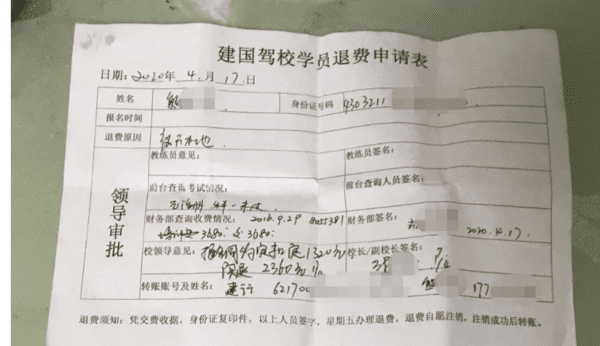 建国驾校学员退费申请表
日期：2020年 4.月 17.日
姓名 熊 身份证号码 4303211
报名时间
退费原因
教练员意见： 教练员签名：
前台查询考试情况： 前台查询人员签名：
领导审批
财务部查询收费情况：2016.9.29 8055381 财务部签名：
3680 3680. 2020.4.17.
校领导意见： 扣 1320元 校长/副校长签名：
2360元
转账账号及姓名： 建行 621700 熊 177
退费须知：凭交费收据，身份证复印件，以上人员签字，星期五办理退费，退费自愿注销，注销成功后转账。